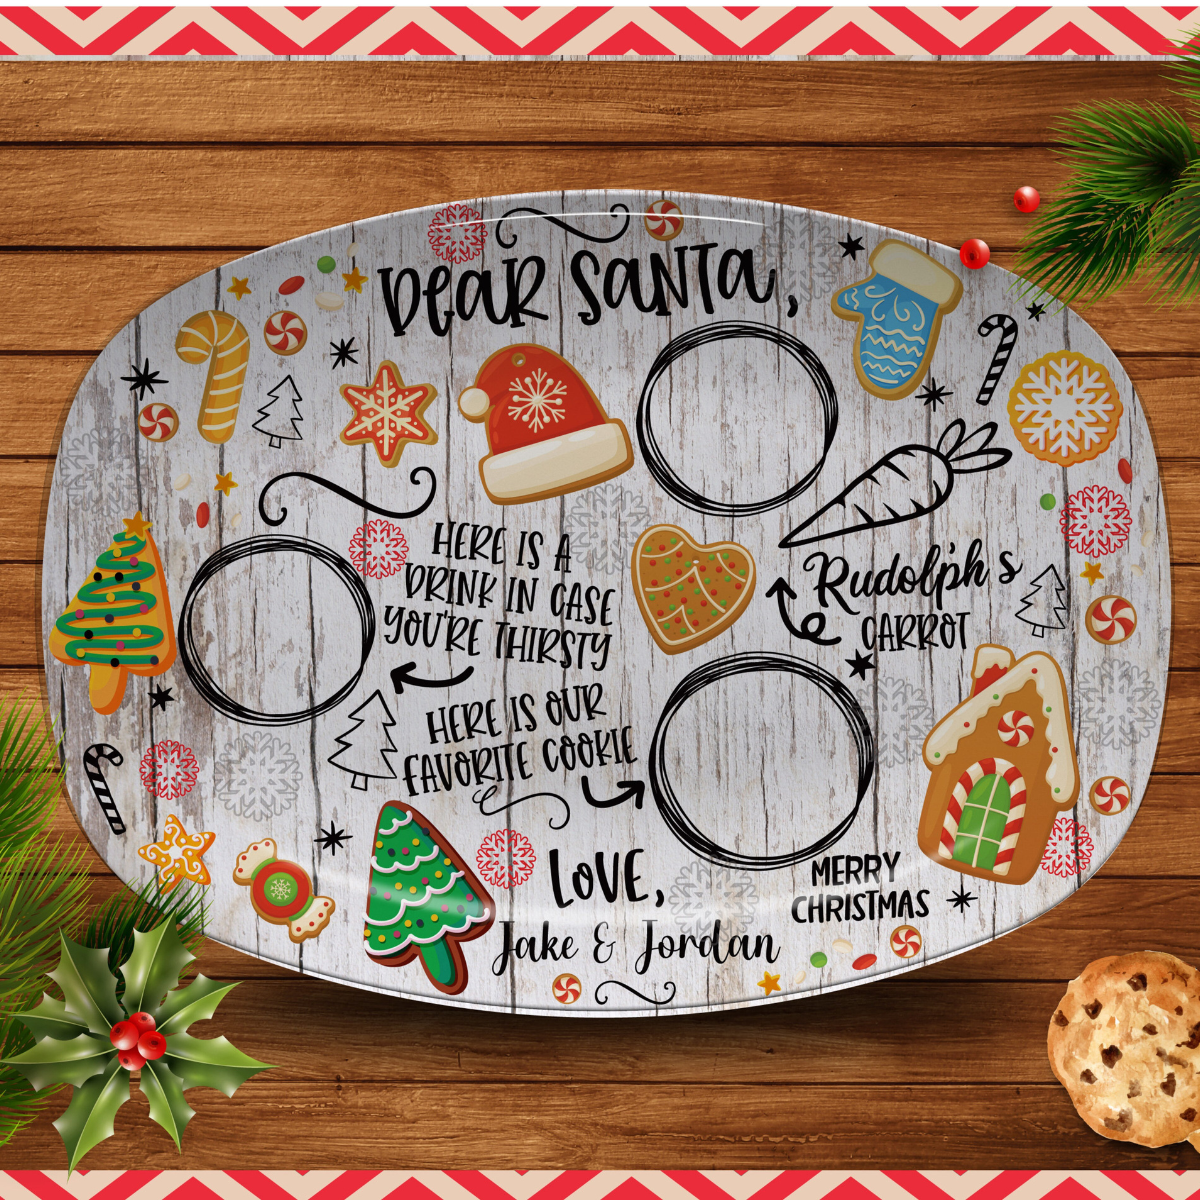 DEAR SANTA,
HERE IS A
DRINK IN CASE
YOU'RE THIRSTY
Rudolph's
CARROT
HERE IS OUR
FAVORITE COOKIE
LOVE,
Jake & Jordan
MERRY
CHRISTMAS